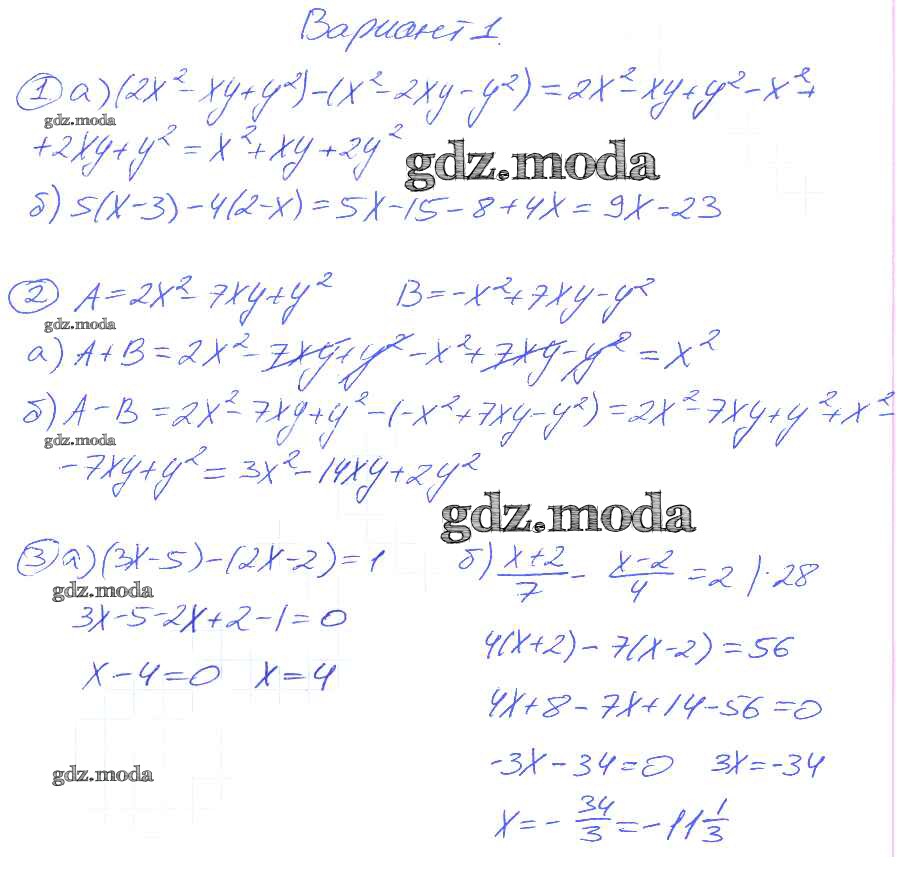 Вариант 1.
① а) (2x² - xy + y²) - (x² - 2xy - y²) = 2x² - xy + y² - x² +
gdz.moda
+ 2xy + y² = x² + xy + 2y²
gdz.moda
б) 5(x - 3) - 4(2 - x) = 5x - 15 - 8 + 4x = 9x - 23
② A = 2x² - 7xy + y² B = -x² + 7xy - y²
gdz.moda
а) A + B = 2x² - 7xy + y² - x² + 7xy - y² = x²
б) A - B = 2x² - 7xy + y² - (-x² + 7xy - y²) = 2x² - 7xy + y² + x² -
gdz.moda
- 7xy + y² = 3x² - 14xy + 2y²
gdz.moda
③ а) (3x - 5) - (2x - 2) = 1
gdz.moda
3x - 5 - 2x + 2 - 1 = 0
x - 4 = 0 x = 4
gdz.moda
б) (x + 2)/7 - (x - 2)/4 = 2 | · 28
4(x + 2) - 7(x - 2) = 56
4x + 8 - 7x + 14 - 56 = 0
-3x - 34 = 0 3x = -34
x = - 34/3 = -11 1/3